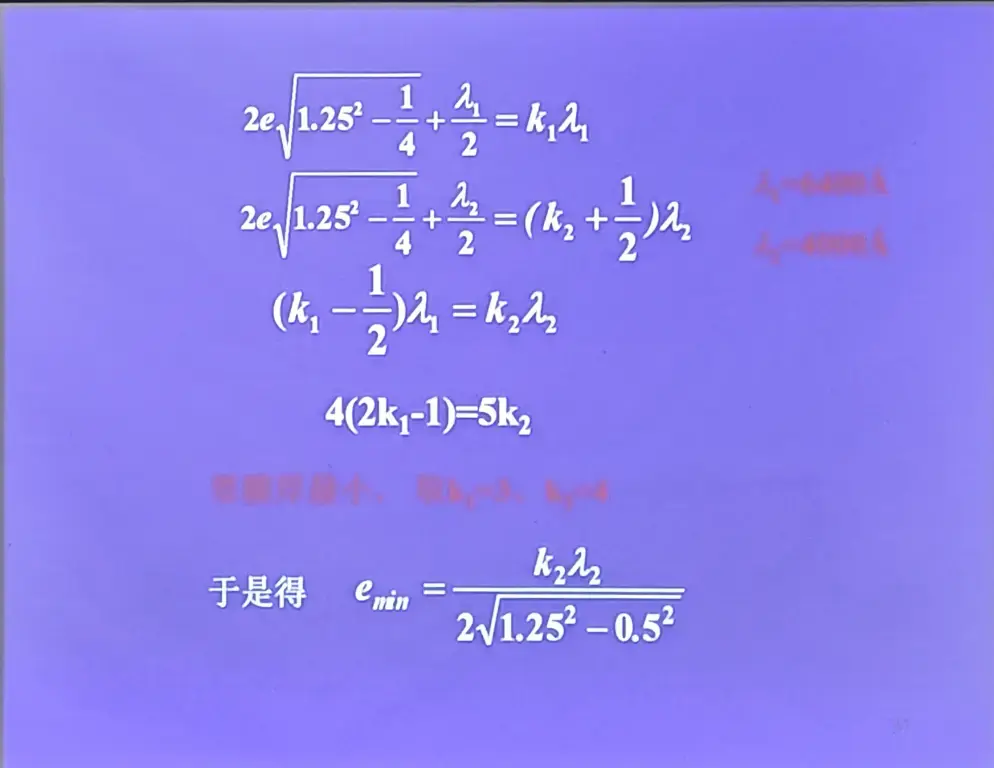 2e√(1.25² − 1/4) + λ₁/2 = k₁λ₁
2e√(1.25² − 1/4) + λ₂/2 = (k₂ + 1/2)λ₂
(k₁ − 1/2)λ₁ = k₂λ₂
4(2k₁-1)=5k₂
于是得 e_min = k₂λ₂ / 2√(1.25² − 0.5²)